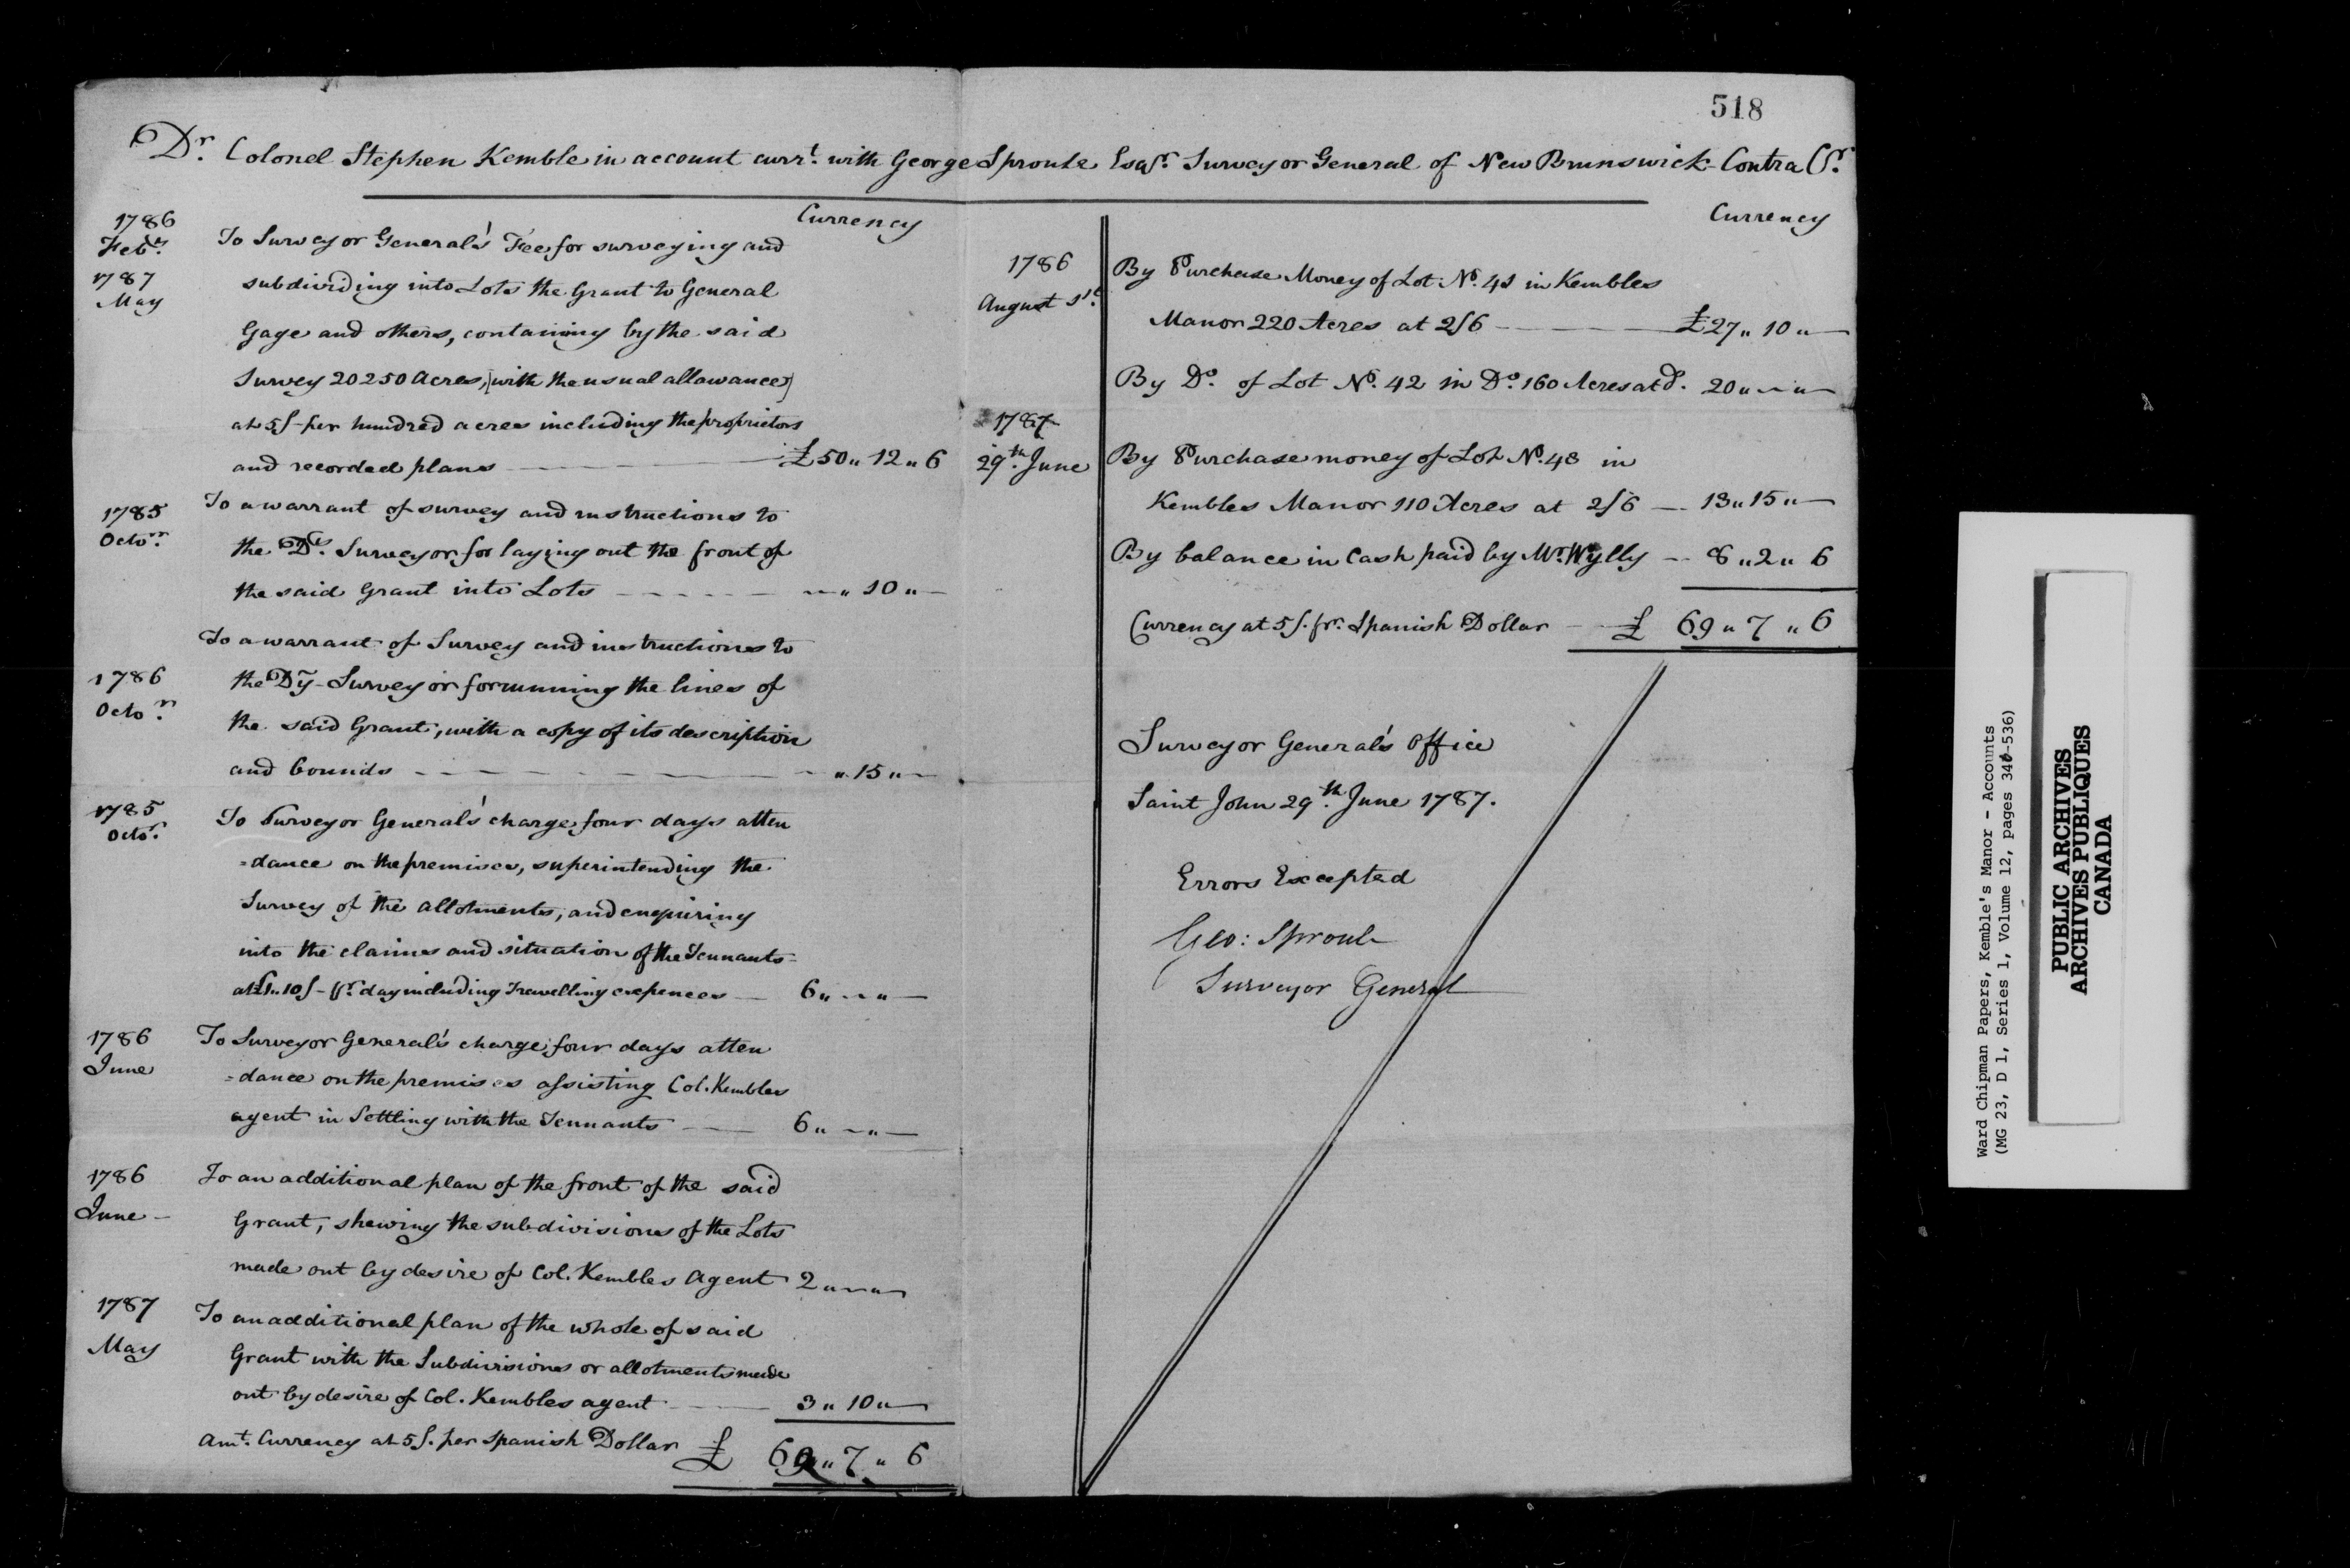 518
Dr. Colonel Stephen Kemble in account currt. with George Sproule Esqr. Surveyor General of New Brunswick - Contra Cr.
Currency
1786
Feby.
To Surveyor General's Fee for surveying and
1787
May
subdividing into Lots the Grant to General
Gage and others, containing by the said
Survey 20250 Acres, (with the usual allowance)
at 5/- per hundred acres including the proprietors
and recorded plans £50 " 12 " 6
1785
Octor.
To a warrant of survey and instructions to
the Dy. Surveyor for laying out the front of
the said Grant into Lots — " 10 " —
To a warrant of Survey and instructions to
1786
Octor.
the Dy- Surveyor for running the lines of
the said Grant, with a copy of its description
and bounds — " 15 " —
1785
Octor.
To Surveyor General's charge four days atten
=dance on the premises, superintending the
Survey of the allotments, and enquiring
into the claims and situation of the Tennants
at £1..10/- pr. day including Travelling expences — 6 " — " —
1786
June
To Surveyor General's charge four days atten
=dance on the premises assisting Col. Kembles
agent in Settling with the Tennants — 6 " — " —
1786
June -
To an additional plan of the front of the said
Grant, shewing the subdivisions of the Lots
made out by desire of Col. Kembles Agent 2 " — " —
1787
May
To an additional plan of the whole of said
Grant with the Subdivisions or allotments made
out by desire of Col. Kembles agent — 3 " 10 " —
Amt. Currency at 5/. per Spanish Dollar £ 69 " 7 " 6
Currency
1786
August 1st.
By Purchase Money of Lot No. 41 in Kembles
Manor 220 Acres at 2/6 — £27 " 10 " —
By Do. of Lot No. 42 in Do. 160 Acres at Do. 20 " — " —
1787
29th. June
By Purchase money of Lot No. 48 in
Kembles Manor 110 Acres at 2/6 — 13 " 15 " —
By balance in Cash paid by Mr. Wylly — 8 " 2 " 6
Currency at 5/. pr. Spanish Dollar — £ 69 " 7 " 6
Surveyor General's Office
Saint John 29th. June 1787.
Errors Excepted
Geo: Sproule
Surveyor General
Ward Chipman Papers, Kemble's Manor - Accounts
(MG 23, D 1, Series 1, Volume 12, pages 346-536)
PUBLIC ARCHIVES
ARCHIVES PUBLIQUES
CANADA